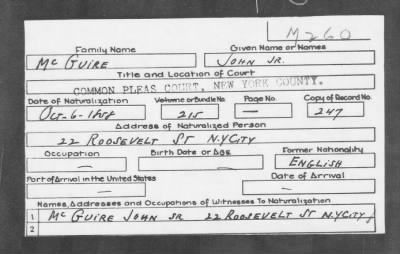 M260
Family Name Given Name or Names
Mc GUIRE JOHN JR.
Title and Location of Court
COMMON PLEAS COURT, NEW YORK COUNTY.
Date of Naturalization Volume or Bundle No. Page No. Copy of Record No.
Oct-6-1858 215 — 247
Address of Naturalized Person
22 ROOSEVELT ST N.Y CITY
Occupation Birth Date or Age Former Nationality
— — ENGLISH
Port of Arrival in the United States Date of Arrival
— —
Names, Addresses and Occupations of Witnesses To Naturalization
1 Mc GUIRE JOHN SR 22 ROOSEVELT ST N.Y CITY
2